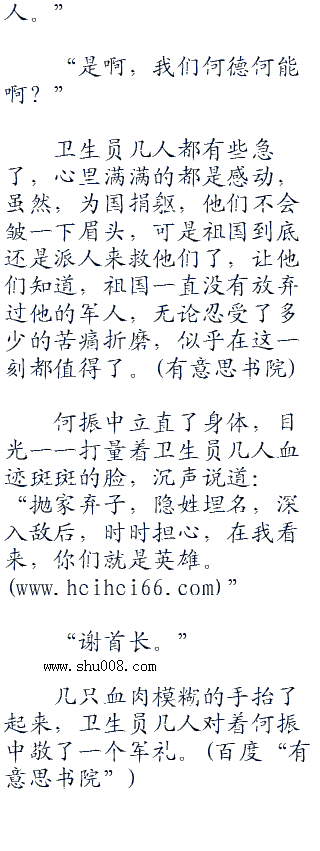 人。”
“是啊，我们何德何能
啊？”
卫生员几人都有些急
了，心里满满的都是感动，
虽然，为国捐躯，他们不会
皱一下眉头，可是祖国到底
还是派人来救他们了，让他
们知道，祖国一直没有放弃
过他的军人，无论忍受了多
少的苦痛折磨，似乎在这一
刻都值得了。(有意思书院)
何振中立直了身体，目
光一一打量着卫生员几人血
迹斑斑的脸，沉声说道：
“抛家弃子，隐姓埋名，深
入敌后，时时担心，在我看
来，你们就是英雄。
(www.hcihci66.com)”
“谢首长。”
www.shu008.com
几只血肉模糊的手抬了
起来，卫生员几人对着何振
中敬了一个军礼。(百度“有
意思书院”)